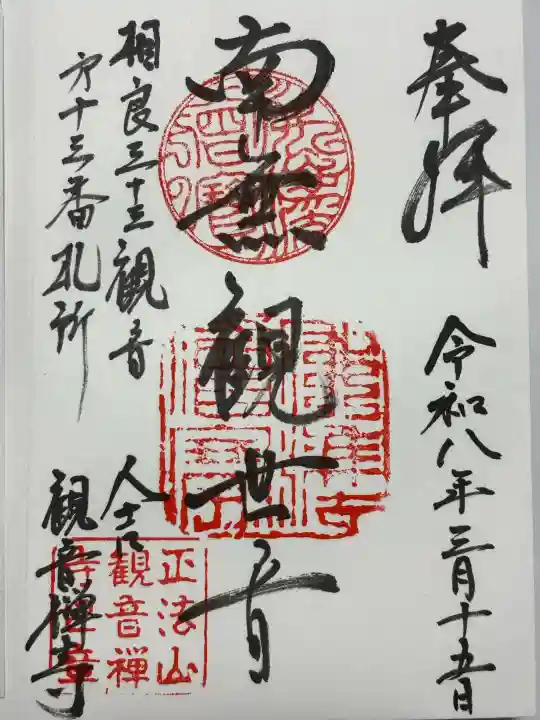 奉拝
令和八年三月十五日
南無観世音
相良三十三観音
第十三番札所
人吉
観音禅寺
正法山
観音禅
寺之章